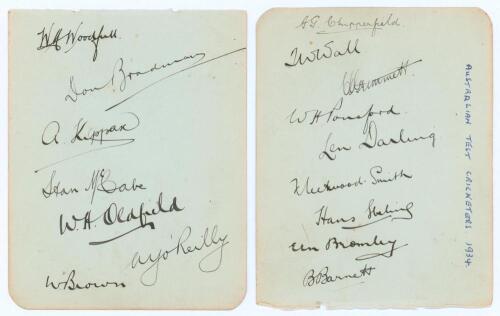 W M Woodfull
Don Bradman
A. Kippax
Stan McCabe
W. A. Oldfield
W J O'Reilly
W Brown
A G Chipperfield
T W Wall
C V Grimmett
W H Ponsford
Len Darling
Fleetwood-Smith
Hans Ebeling
E H Bromley
B Barnett
AUSTRALIAN TEST CRICKETERS 1934